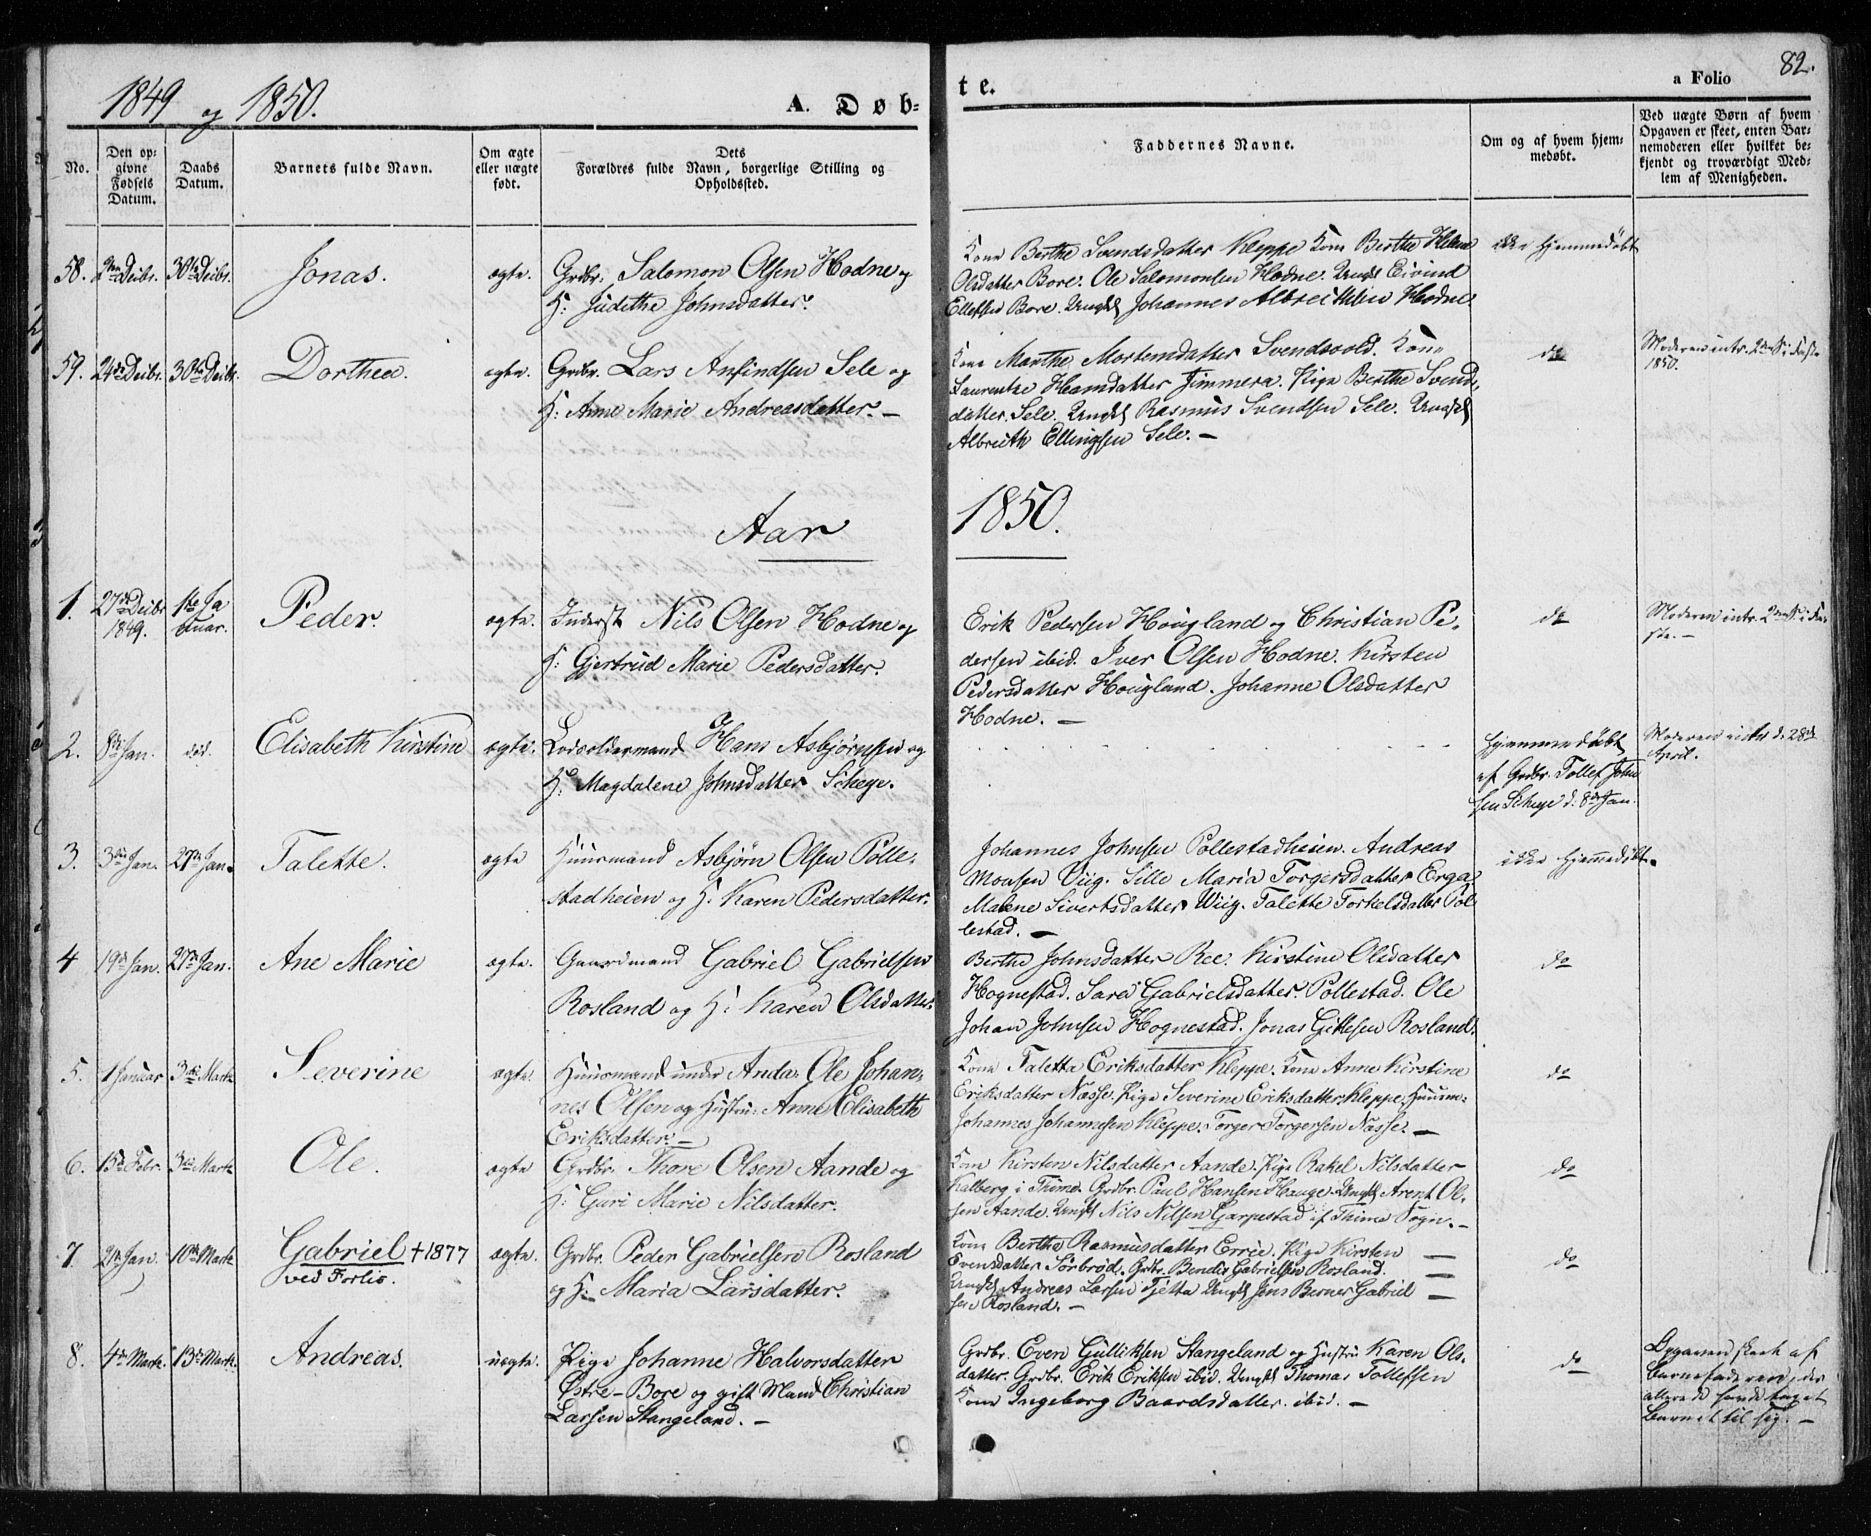 1849 og 1850.
A. Døb-
te.
a Folio
82.
No.
Den op-
givne
Fødsels
Datum.
Daabs
Datum.
Barnets fulde Navn.
Om ægte
eller uægte
født.
Dets
Forældres fulde Navn, borgerlige Stilling og
Opholdssted.
Faddernes Navne.
Om og af hvem hjem-
medøbt.
Ved uægte Børn af hvem
Opgaven er skeet, enten Bar-
nemoderen eller hvilket be-
kjendt og troværdigt Med-
lem af Menigheden.
58. 2den Decbr. 30te Decbr. Jonas. ægte. Grdbr. Salomon Olsen Hodne og
H: Judithe Johnsdatter.
Kone Berthe Svendsdatter Kleppe. Kone Berthe Helene
Olsdatter Bore. Ole Salomonsen Hodne. Ungk Eivind
Ellefsen Bore. Ungk Johannes Albreithsen Hodne
ikke hjemmedøbt
59. 24de Decbr. 30te Decbr. Dorthea. ægte. Grdbr. Lars Anfindsen Sele og
H: Anne Marie Andreasdatter. —
Kone Marthe Mortensdatter Svendsvold. Kone
Laurentze Hansdatter Jimmera. Pige Berthe Svends-
datter Sele. Ungk Rasmus Svendsen Sele. Ungk
Albreith Ellingsen Sele. —
do
Moderen intr. 2den S. i Faste
1850.
Aar
1850.
1. 27de Decbr 1849. 1te Ja-
nuar. Peder. ægte. Inderst Nils Olsen Hodne og
H: Gjertrud Marie Pedersdatter.
Erik Pedersen Hougland og Christian Pe-
dersen ibid. Iver Olsen Hodne. Kirsten
Pedersdatter Hougland. Johanne Olsdatter
Hodne. —
do
Moderen intr. 2den S. i Fa-
ste. —
2. 8de Jan. død. Elisabeth Kirstine ægte. Lodsoldermand Hans Asbjørnsen og
H: Magdalene Johnsdatter Scheye.
Hjemmedøbt
af Grdbr. Tollef John-
sen Scheye d. 8de Jan.
Moderen d. 28de
April.
3. 3die Jan. 27de Jan. Talette. ægte Huusmand Asbjørn Olsen Polle-
stadheien og H: Karen Pedersdatter.
Johannes Johnsen Pollestadheien. Andreas
Monsen Viig. Sille Maria Torgersdatter Erga
Malene Sivertsdatter Wiig. Talette Torkelsdatter Pol-
lestad. —
ikke hjemmedøbt.
4 19de Jan. 27de Jan. Ane Marie ægte. Gaardmand Gabriel Gabrielsen
Rosland og H: Karen Olsdatter.
Berthe Johnsdatter Ree. Kirstine Olsdatter
Hognestad. Sara Gabrielsdatter Pollestad. Ole
Johan Johnsen Hognestad. Jonas Gittesen Rosland.
do
5. 1 Januar 3die Marts Severine ægte. Huusmand under Anda: Ole Johan-
nes Olsen og Hustru: Anne Elisabeth
Eriksdatter. —
Kone Taletta Eriksdatter Kleppe. Kone Anne Kirstine
Eriksdatter Næsse. Pige Severine Eriksdatter Kleppe. Huusm.
Johannes Johannesen Kleppe. Torger Torgersen Næsse. —
do
6. 15de Febr. 3die Marts Ole. ægte Grdbr. Thore Olsen Aande og
H: Guri Marie Nilsdatter.
Kone Kirsten Nilsdatter Aande. Pige Rakel Nilsdatter
Kalberg i Thime. Grdbr. Paul Hansen Hauge. Ungk Arent Ol-
sen Aande. Ungk Nils Nilsen Garpestad af Thime Sogn. —
do
7 2den Jan. 10de Marts Gabriel † 1877
ved Forliis.
ægte. Grdbr. Peder Gabrielsen Rosland
og H: Maria Larsdatter.
Kone Berthe Rasmusdatter Erria. Pige Kirsten —
Evensdatter Sörbröd. Grdbr. Bendix Gabrielsen Rosland. —
Ungk Andreas Larsen Tjetta Ungk Jens Berner Gabriel- —
sen Rosland. —
do
8. 4de Marts 13de Marts Andreas. uægte. Pige Johanne Halvorsdatter
Østre-Bore og gift Mand Christian
Larsen Stangeland. —
Grdbr. Even Gulliksen Stangeland og Hustru Karen Ols-
datter. Grdbr. Erik Eriksen ibid. Ungk Thomas Tollefsen
Kone Ingeborg Baardsdatter ibid. —
do
Opgaven skeet af
Barnefaderen, der
allerede havde taget
Barnet til sig. —